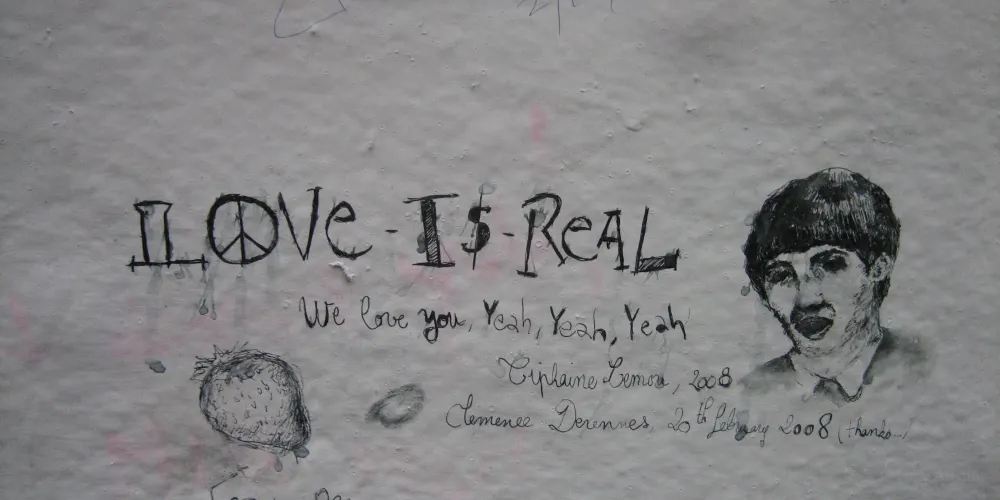 LOVe - I$ - ReAL
We love you, Yeah, Yeah, Yeah
Lemon, 2008
Clemence Derennes, 20th February 2008 (thanks...)